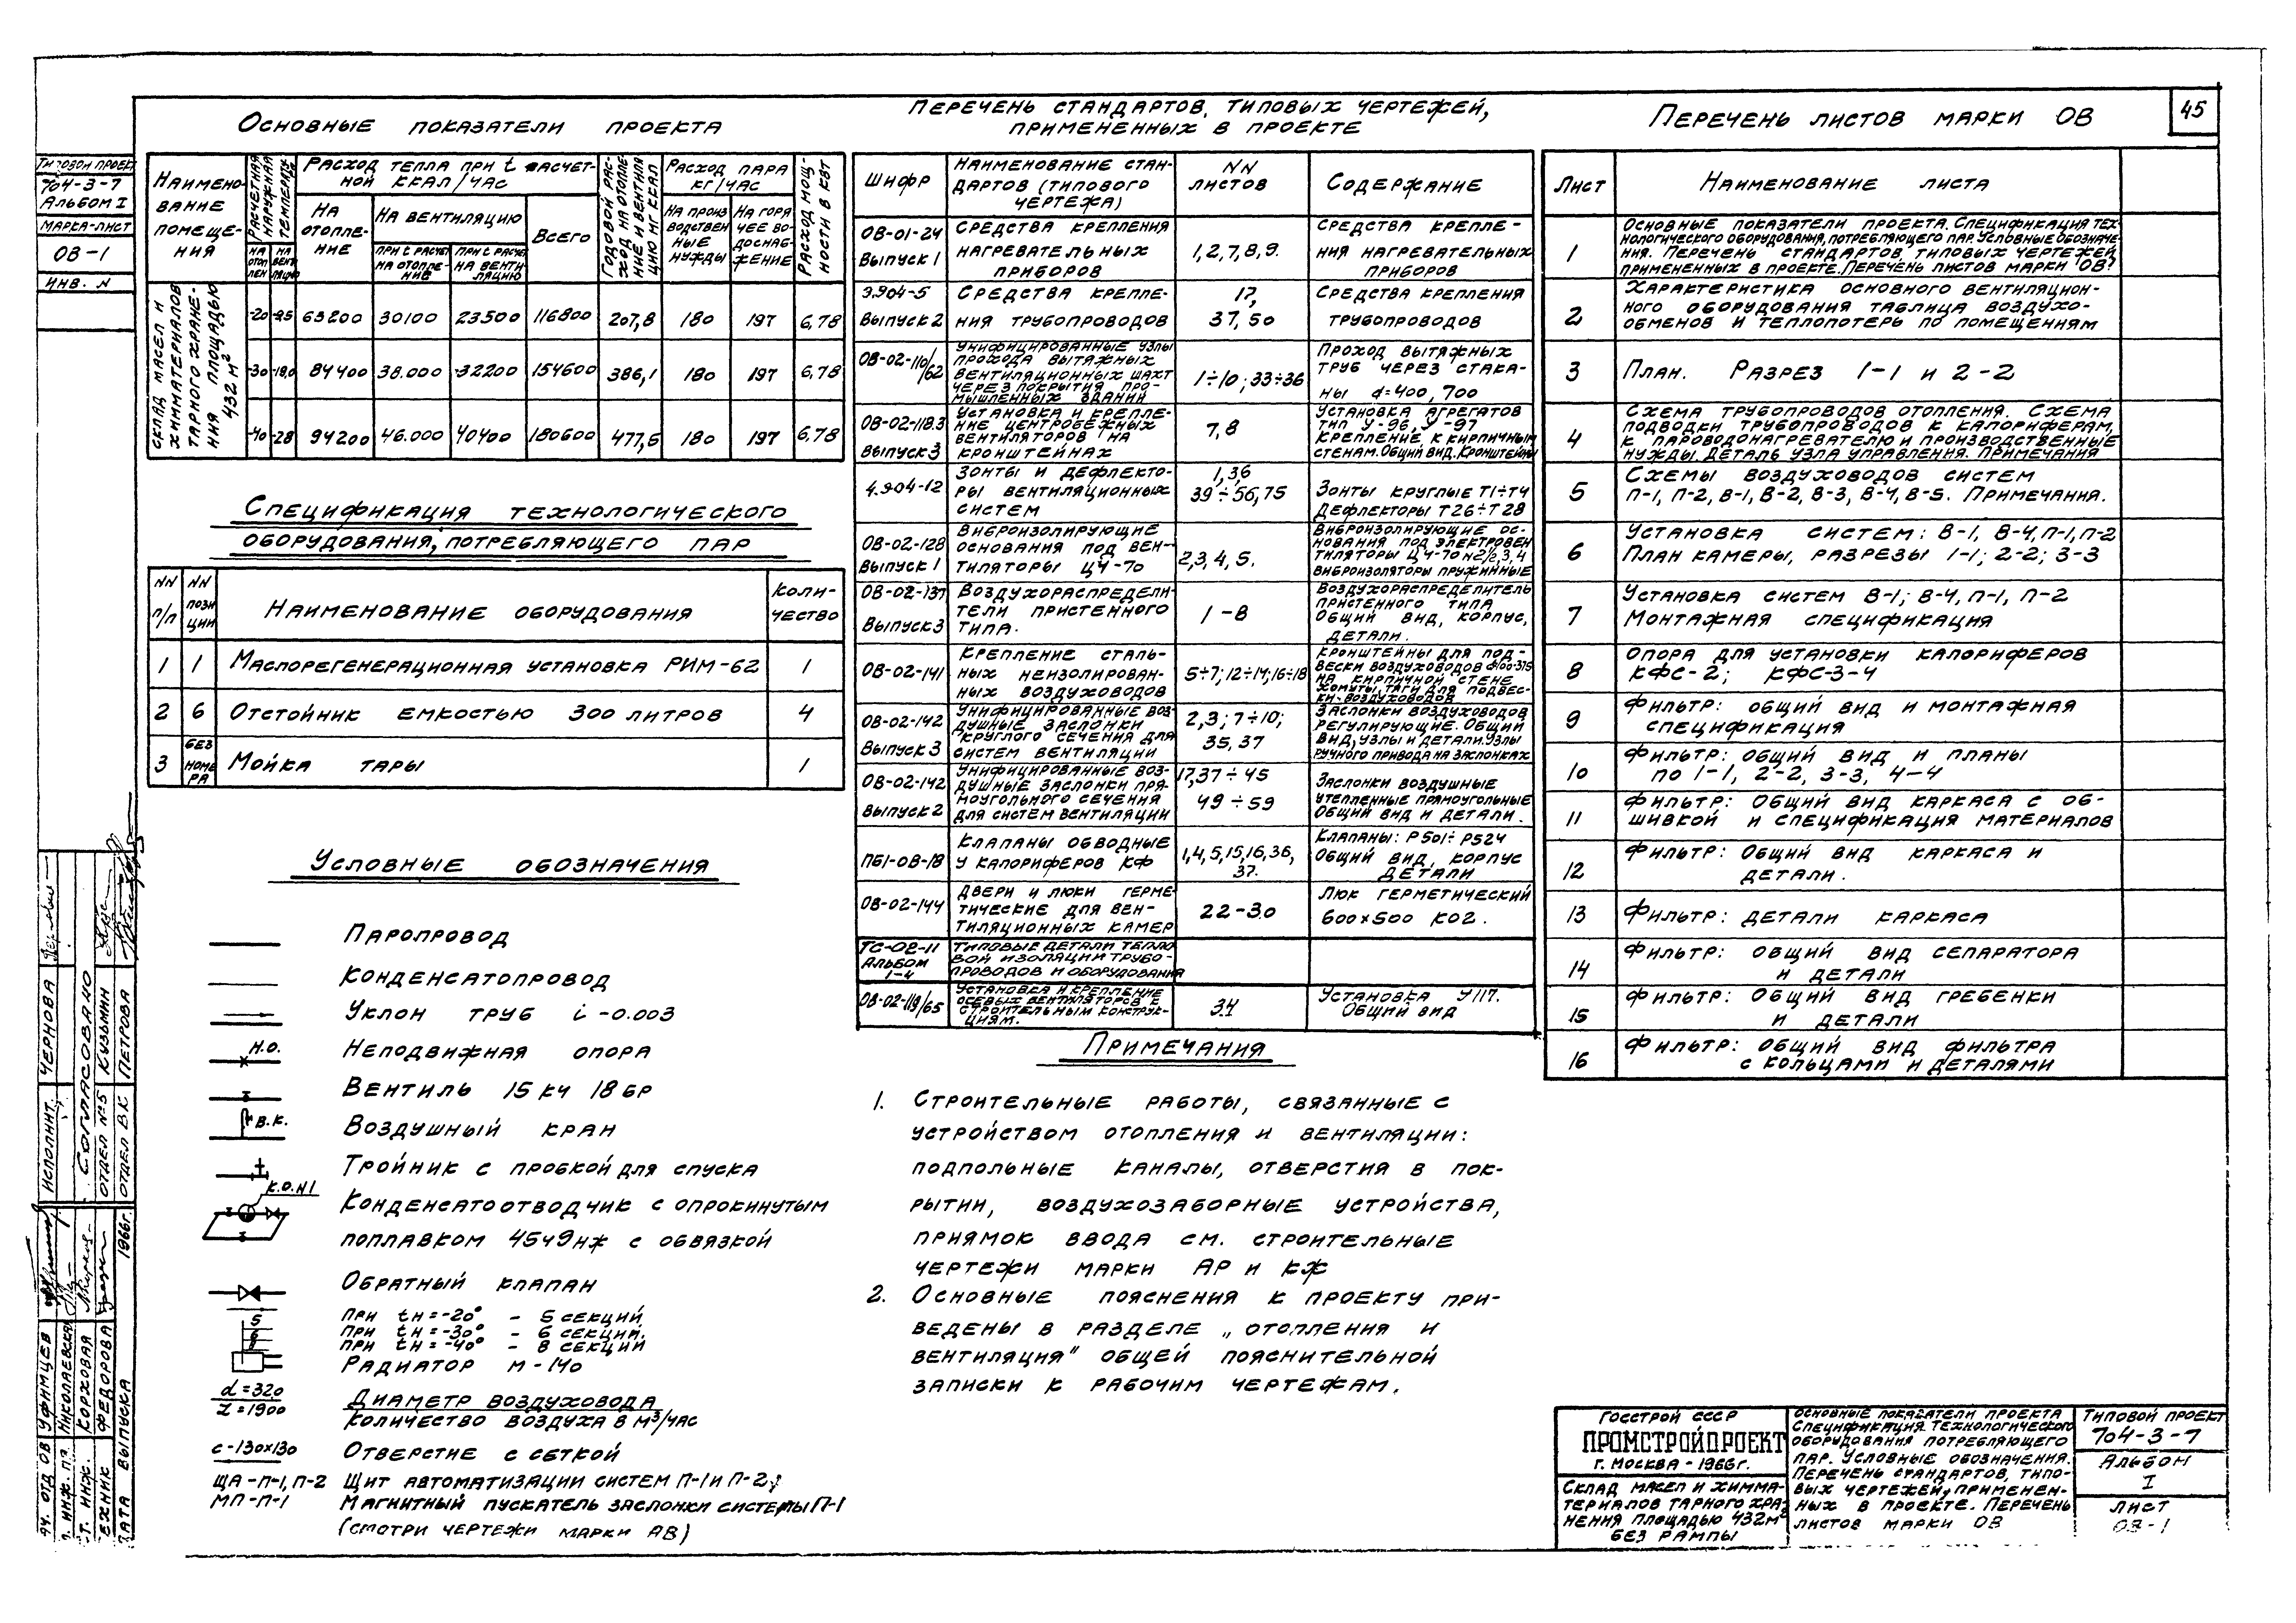 45
Основные показатели проекта
Наимено-
вание
помеще-
ния
Расчетная
наружная
температура
на
отоп
лен
на
вент
ляцию
Расход тепла при t расчет-
ной ккал/час
на
отопле-
ние
на вентиляцию
при t расчет
на отопле-
ние
при t расчет
на венти-
ляцию
Всего
Годовой рас-
ход на отопле-
ние и вентиля
цию мг ккал
Расход пара
кг/час
на произ
водствен
ные
нужды
на горя
чее во-
доснаб-
жение
Расход мощ-
ности в квт
Склад масел и
химматериалов
тарного хране-
ния площадью
432 м²
-20 -9,5 63200 30100 23500 116800 207,8 180 197 6,78
-30 -19,0 84400 38.000 32200 154600 386,1 180 197 6,78
-40 -28 94200 46.000 40400 180600 477,6 180 197 6,78
Спецификация технологического
оборудования, потребляющего пар
NN
п/п
NN
пози
ции
Наименование оборудования
Коли-
чество
1 1 Маслорегенерационная установка РИМ-62 1
2 6 Отстойник емкостью 300 литров 4
3 без
номе
ра Мойка тары 1
Условные обозначения
Паропровод
Конденсатопровод
Уклон труб i-0.003
Н.О. Неподвижная опора
Вентиль 15 кч 18 бр
В.К. Воздушный кран
Тройник с пробкой для спуска
К.О.N1 Конденсатоотводчик с опрокинутым
поплавком 45ч9нж с обвязкой
Обратный клапан
5
6
8
при tн=-20° - 5 секций
при tн=-30° - 6 секций.
при tн=-40° - 8 секций
Радиатор М-140
d=320
L=1900
Диаметр воздуховода
Количество воздуха в м³/час
с-130х130 Отверстие с сеткой
ЩА-П-1, П-2 Щит автоматизации систем П-1 и П-2;
МП-П-1 Магнитный пускатель заслонки системы П-1
(смотри чертежи марки АВ)
Перечень стандартов, типовых чертежей,
примененных в проекте
Шифр
Наименование стан-
дартов (типового
чертежа)
NN
листов
Содержание
ОВ-01-24
Выпуск 1
Средства крепления
нагревательных
приборов
1,2,7,8,9.
Средства крепле-
ния нагревательных
приборов
3.904-5
Выпуск 2
Средства крепле-
ния трубопроводов
17,
37, 50
Средства крепления
трубопроводов
ОВ-02-110/62
Унифицированные узлы
прохода вытяжных
вентиляционных шахт
через покрытия про-
мышленных зданий
1÷10; 33÷36
Проход вытяжных
труб через стака-
ны d=400, 700
ОВ-02-118.3
Выпуск 3
Установка и крепле-
ние центробежных
вентиляторов на
кронштейнах
7, 8
Установка агрегатов
тип У-96, У-97
Крепление к кирпичным
стенам. Общий вид. Кронштейны
4.904-12
Зонты и дефлекто-
ры вентиляционных
систем
1,36
39÷56,75
Зонты круглые Т1÷Т4
Дефлекторы Т26÷Т28
ОВ-02-128
Выпуск 1
Виброизолирующие
основания под вен-
тиляторы Ц4-70
2,3,4,5.
Виброизолирующие ос-
нования под электровен
тиляторы Ц4-70 н2½,3,4
виброизоляторы пружинные
ОВ-02-137
Выпуск 3
Воздухораспредели-
тели пристенного
типа.
1-8
Воздухораспределитель
пристенного типа
Общий вид, корпус,
детали.
ОВ-02-141
Крепление сталь-
ных неизолирован-
ных воздуховодов
5÷7; 12÷14; 16÷18
Кронштейны для под-
вески воздуховодов ф100-375
на кирпичной стене
хомуты, тяги для подвес-
ки воздуховодов
ОВ-02-142
Выпуск 3
Унифицированные воз-
душные заслонки
круглого сечения для
систем вентиляции
2,3; 7÷10;
35,37
Заслонки воздуховодов
регулирующие. Общий
вид, узлы и детали. Узлы
ручного привода на заслонках
ОВ-02-142
Выпуск 2
Унифицированные воз-
душные заслонки пря-
моугольного сечения
для систем вентиляции
17,37÷45
49÷59
Заслонки воздушные
утепленные прямоугольные
Общий вид и детали.
ПБ1-ОВ-18
Клапаны обводные
у калориферов КФ
1,4,5,15,16,36,
37.
Клапаны: Р501÷Р524
Общий вид, корпус
детали
ОВ-02-144
Двери и люки герме
тические для вен-
тиляционных камер
22-30
Люк герметический
600х500 К02.
ТС-02-11
Альбом
1-4
Типовые детали тепло
вой изоляции трубо-
проводов и оборудования
ОВ-02-119/65
Установка и крепление
осевых вентиляторов к
строительным конструк-
циям.
34
Установка У117.
Общий вид
Примечания
1. Строительные работы, связанные с
устройством отопления и вентиляции:
подпольные каналы, отверстия в пок-
рытии, воздухозаборные устройства,
приямок ввода см. строительные
чертежи марки АР и КЖ
2. Основные пояснения к проекту при-
ведены в разделе „отопления и
вентиляция" общей пояснительной
записки к рабочим чертежам.
Перечень листов марки ОВ
Лист Наименование листа
1 Основные показатели проекта. Спецификация тех-
нологического оборудования, потребляющего пар. Условные обозначе-
ния. Перечень стандартов, типовых чертежей
примененных в проекте. Перечень листов марки "ОВ"
2 Характеристика основного вентиляцион-
ного оборудования таблица воздухо-
обменов и теплопотерь по помещениям
3 План. Разрез 1-1 и 2-2
4 Схема трубопроводов отопления. Схема
подводки трубопроводов к калориферам,
к пароводонагревателю и производственные
нужды. Деталь узла управления. Примечания
5 Схемы воздуховодов систем
П-1, П-2, В-1, В-2, В-3, В-4, В-5. Примечания.
6 Установка систем: В-1, В-4, П-1, П-2
План камеры, разрезы 1-1; 2-2; 3-3
7 Установка систем В-1; В-4, П-1, П-2
Монтажная спецификация
8 Опора для установки калориферов
КФС-2; КФС-3-4
9 Фильтр: общий вид и монтажная
спецификация
10 Фильтр: общий вид и планы
по 1-1, 2-2, 3-3, 4-4
11 Фильтр: общий вид каркаса с об-
шивкой и спецификация материалов
12 Фильтр: общий вид каркаса и
детали.
13 Фильтр: детали каркаса
14 Фильтр: общий вид сепаратора
и детали
15 Фильтр: общий вид гребенки
и детали
16 Фильтр: общий вид фильтра
с кольцами и деталями
Госстрой СССР
ПРОМСТРОЙПРОЕКТ
г. Москва - 1966г.
Склад масел и химма-
териалов тарного хра-
нения площадью 432м²
без рампы
Основные показатели проекта
Спецификация технологического
оборудования потребляющего
пар. Условные обозначения.
Перечень стандартов, типо-
вых чертежей, применен-
ных в проекте. Перечень
листов марки ОВ
Типовой проект
704-3-7
Альбом
I
Лист
ОВ-1
Типовой проект
704-3-7
Альбом I
Марка-лист
ОВ-1
Инв. N
Исполнит. Чернова
Согласовано
Отдел №5 Кузьмин
Отдел ВК Петрова
Уфимцев
Николаевская
Корховая
Федорова
Дата выпуска 1966г.